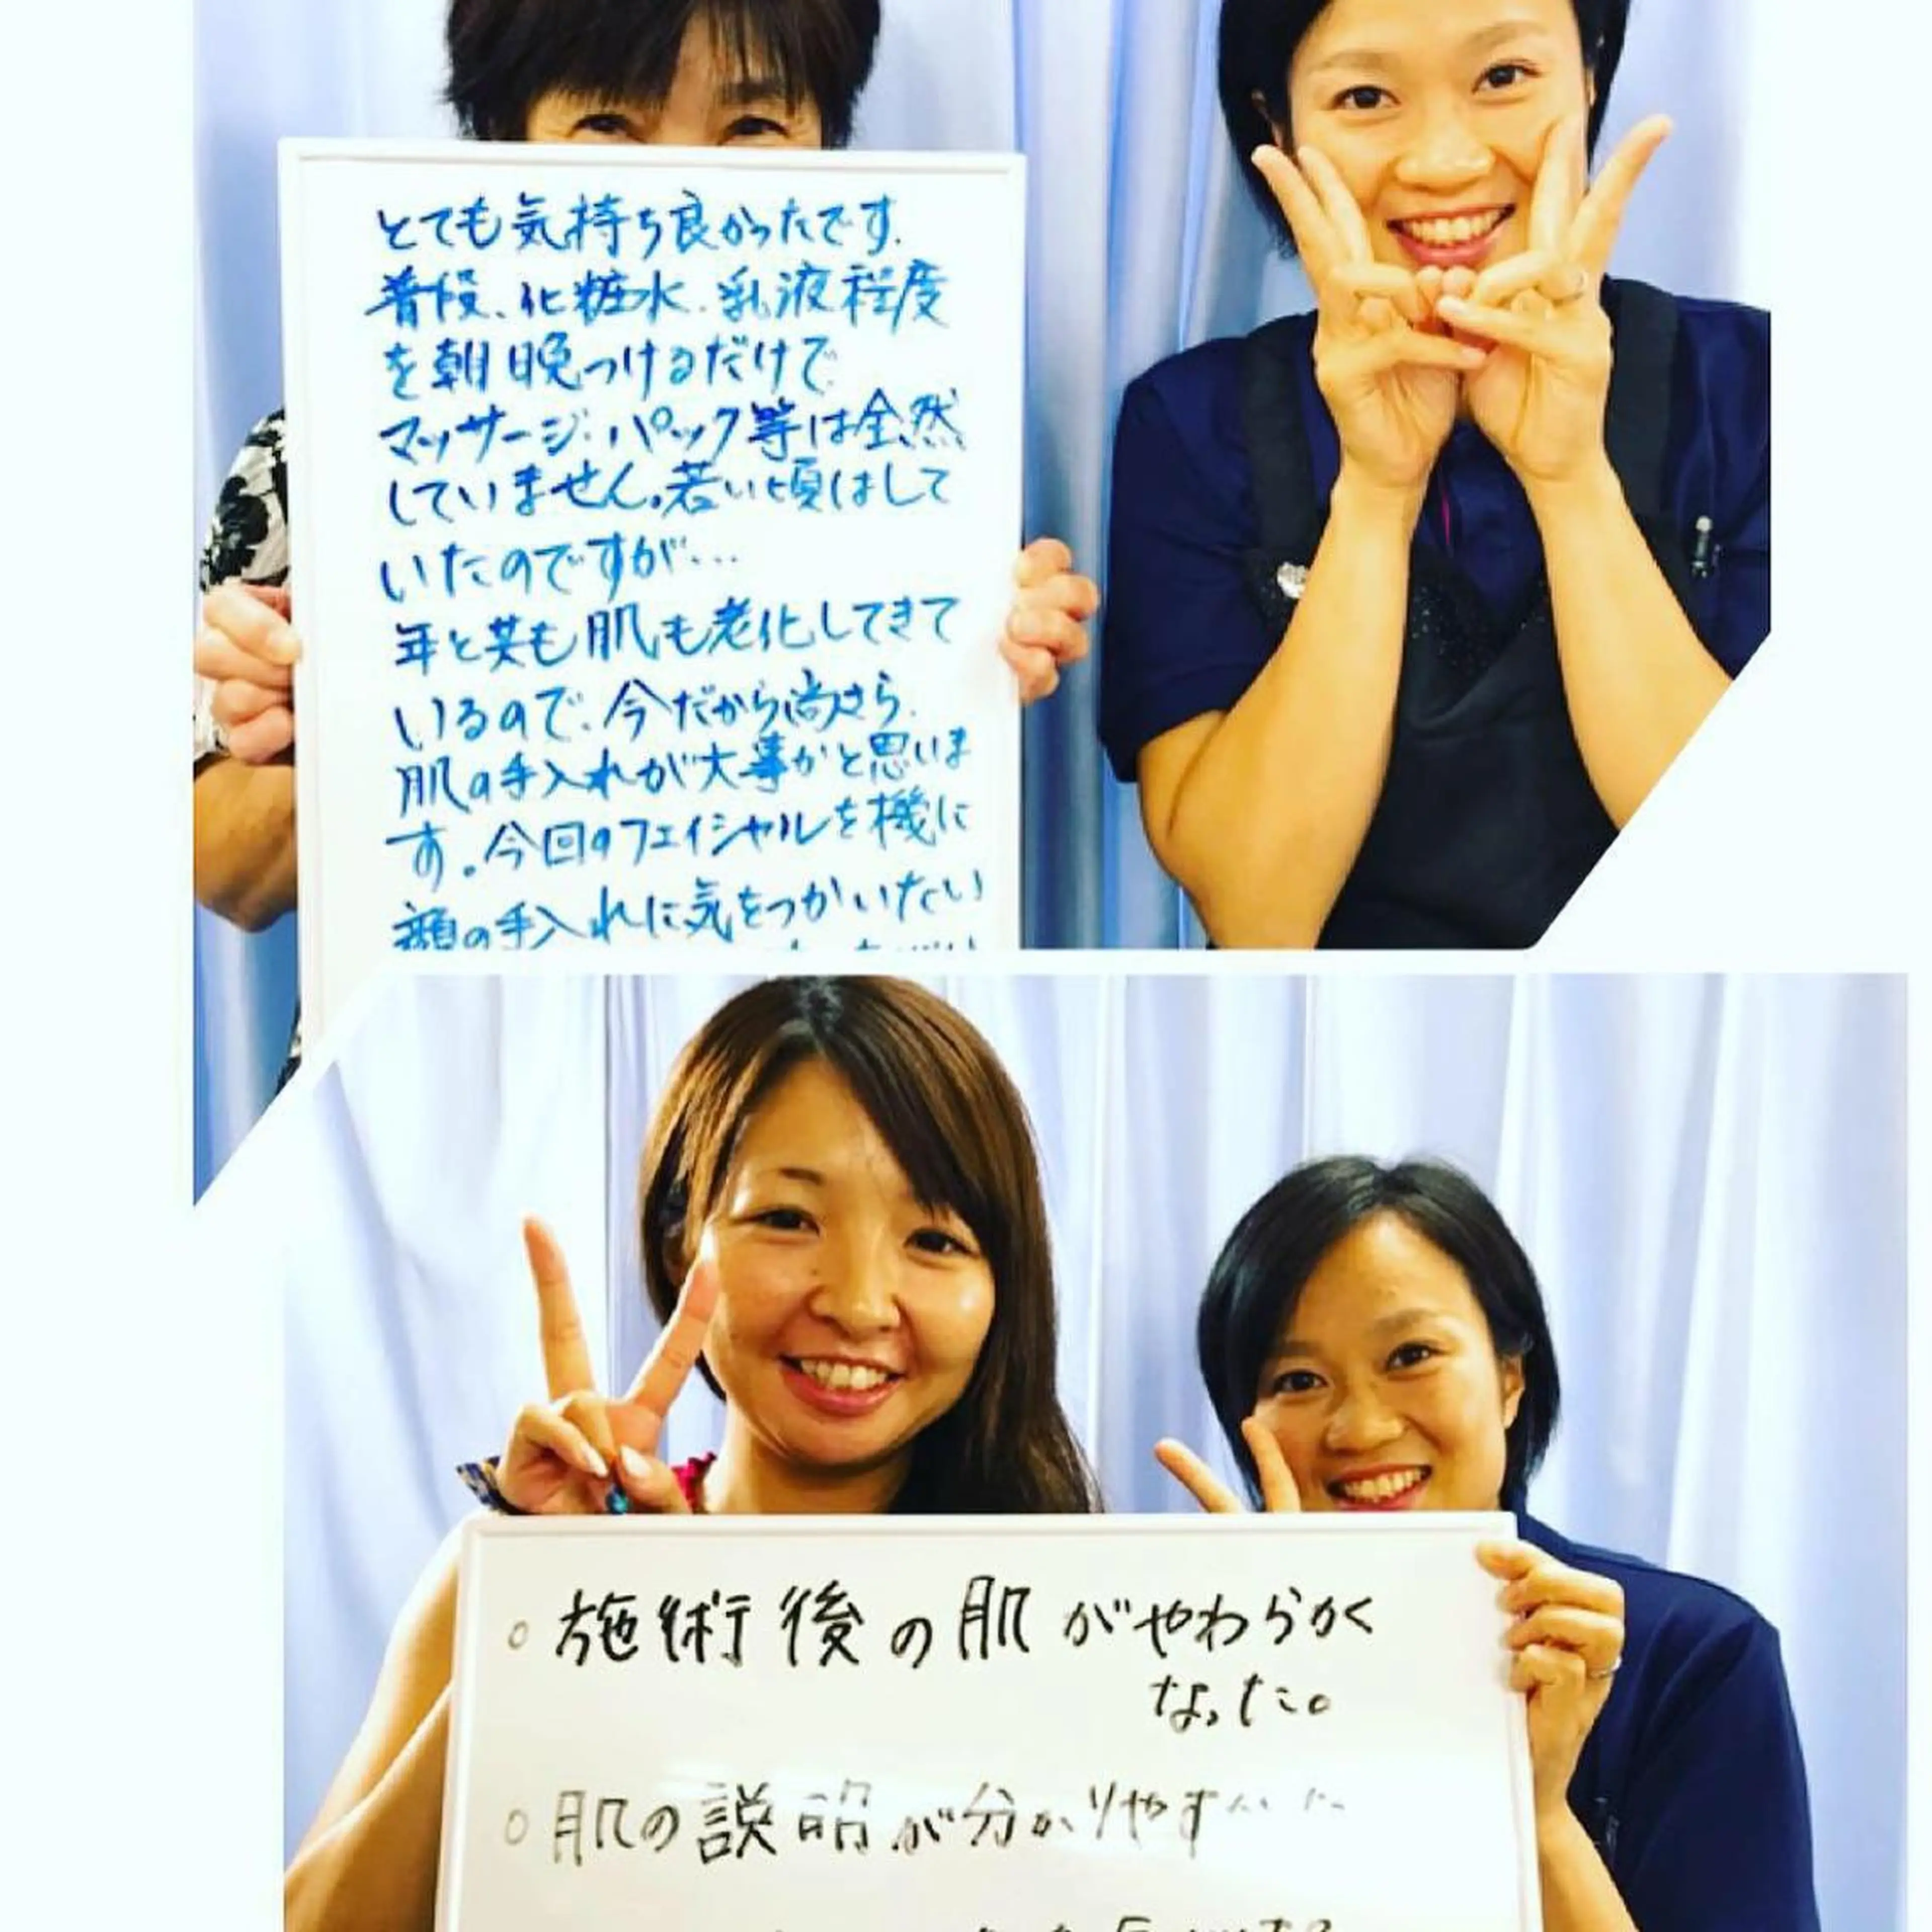 とても気持ち良かったです.
普段、化粧水.乳液程度
を朝晩つけるだけで
マッサージ・パック等は全然
していません。若い頃はして
いたのですが…
年と共も肌も老化してきて
いるので、今だから尚さら、
肌の手入れが大事かと思いま
す。今回のフェイシャルを機に
顔の手入れに気をつかいたい
○施術後の肌がやわらかく
なった。
○肌の説明が分かりやす